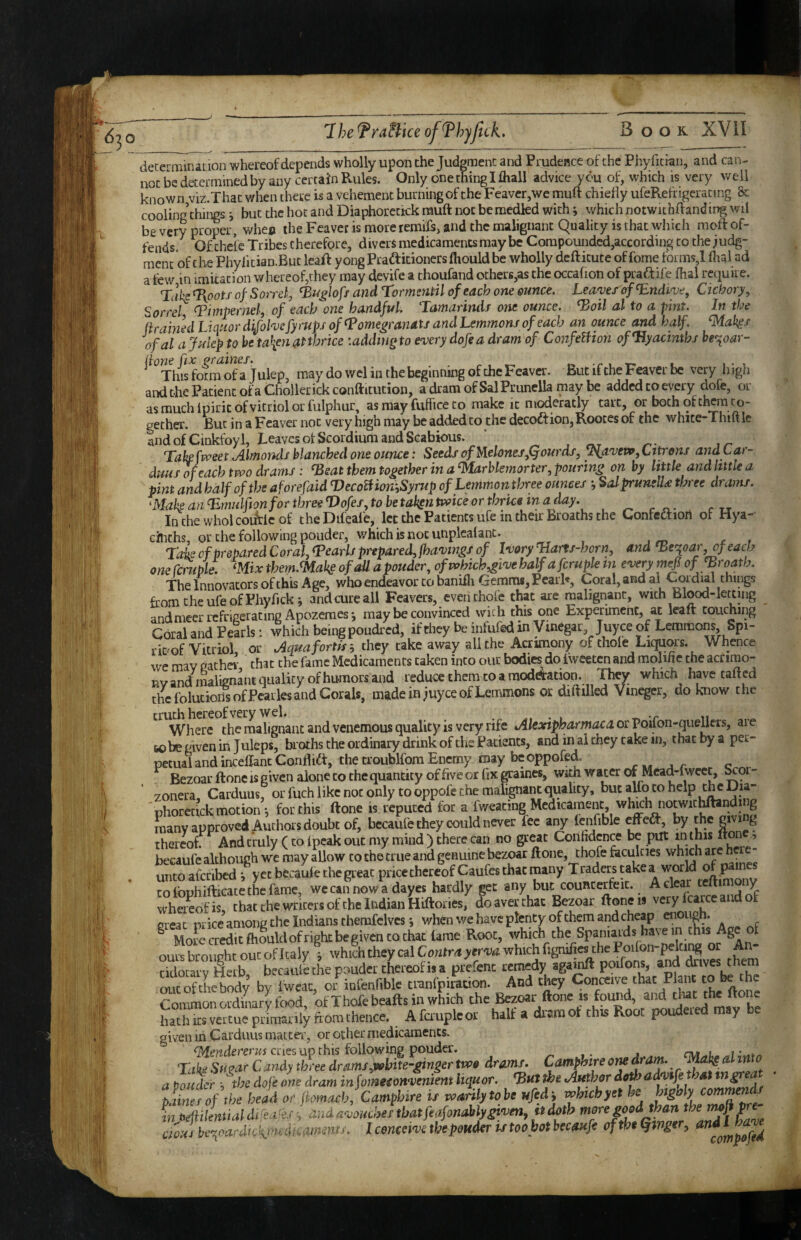 630 The Practice of Physick. Book XVII
determination whereof depends wholly upon the Judgment and Prudence of the Physitian, and can-
not be determined by any certain Rules. Only one thing I shall advice you of, which is very well
known,viz.That when there is a vehement burning of the Feaver,we must chiefly use Refrigerating &
cooling things; but the hot and Diaphoretick must not be medled with; which notwithstanding wil
be very proper, when the Feaver is more remiss, and the malignant Quality is that which most of-
fends. Of these Tribes therefore, divers medicaments may be Compounded,according to the judg-
ment of the Physitian.But least yong Practitioners should be wholly destitute of some forms,I shal ad
a few,in imitation whereof,they may devise a thousand others,as the occasion of practise shal require.
Take Roots of Sorrel, Bugloss and Tormentil of each one ounce. Leaves of Endive, Cichory,
Sorrel, Pimpernel, of each one handful. Tamarinds one ounce. Boil al to a pint. In the
strained Liquor disolve syrups of Pomegranats and Lemmons of each an ounce and half. Makes
of al a Julep to be taken at thrice :adding to every dose a dram of Confection of Hyacinths bezoar-
stone six graines.
This form of a Julep, may do wel in the beginning of the Feaver. But if the Feaver be very high
and the Patient of a Chollerick constitution, a dram of Sal Prunella may be added to every dose, or
as much spirit of vitriol or sulphur, as may suffice to make it moderatly tart, or both of them to-
gether. But in a Feaver not very high may be added to the decoction,Rootes of the white-Thistle
and of Cinkfoyl, Leaves of Scordium and Scabious.
Take sweet Almonds blanched one ounce: Seeds of Melones,Gourds, Navew, Citrons and Car-
duus of each two drams : Beat them together in a Marble morter, pouring on by little and little a
pint and half of the aforesaid Decoction;Syrup of Lemmon three ounces; Sal prunellæ three drams.
Make an Emulsion for three Doses, to be taken twice or thrice in a day.
In the whol course of the Disease, let the Patients use in their Broaths the Confection of Hya-
cinths, or the following pouder, which is not unpleasant.
Take of prepared Coral, Pearls prepared, shavings of Ivory Harts-horn, and Bezoar, of each
one scruple. Mix them.Make of all a pouder, of which,give half a scruple in every mess of Broath.
The Innovators of this Age, who endeavor to banish Gemms, Pearls, Coral, and al Cordial things
from the use of Physick; and cure all Feavers, even those that are malignant, with Blood-letting
and meer refrigerating Apozemes; may be convinced with this one Experiment, at least touching
Coral and Pearls: which being poudred, if they be infused in Vinegar, Juyce of Lemmons, Spi-
rit of Vitriol, or Aqua fortis; they take away all the Acrimony of those Liquors. Whence
we may gather, that the same Medicaments taken into our bodies do sweeten and molifie the acrimo-
ny and malignant quality of humors and reduce them to a moderation. They which have tasted
the solutions of Pearles and Corals, made in juyce of Lemmons or distilled Vineger, do know the
truth hereof very wel.
Where the malignant and venemous quality is very rife Alexipharmaca or Poison-quellers, are
to be given in Juleps, broths the ordinary drink of the Patients, and in al they take in, that by a per-
petual and incessant Conflict, the troublsom Enemy may be opposed.
Bezoar stone is given alone to the quantity of five or six graines, with water of Mead-sweet, Scor-
zonera, Carduus, or such like not only to oppose the malignant quality, but also to help the Dia-
phoretick motion; for this stone is reputed for a sweating Medicament, which notwithstanding
many approved Authors doubt of, because they could never see any sensible effect, by the giving
thereof. And truly (to speak out my mind) there can no great Confidence be put in this stone;
because although we may allow to the true and genuine bezoar stone, those faculties which are here-
unto ascribed; yet because the great price thereof Causes that many Traders take a world of paines
to sophisticate the same, we can now a dayes hardly get any but counterfeit. A clear testimony
whereof is, that the writers of the Indian Histories, do aver that Bezoar stone is very scarce and of
great price among the Indians themselves; when we have plenty of them and cheap enough.
More credit should of right be given to that same Root, which the Spaniards have in this Age of
ours brought out of Italy; which they cal Contra yerva which signifies the Poison-pelting or An-
tidotary Herb, because the pouder thereof is a present remedy against poisons, and drives them
out of the body by sweat, or insensible transpiration. And they Conceive that Plant to be the
Common ordinary food, of Those beasts in which the Bezoar stone is found, and that the stone
hath its vertue primarily from thence. A scruple or half a dram of this Root poudered may be
given in Carduus matter, or other medicaments.
Mendererus cries up this following pouder.
Take Sugar Candy three drams,white-ginger two drams. Camphire one dram. Make al into
a pouder; the dose one dram in some convenient liquor. But the Author doth advise that in great
paines of the head or stomach, Camphire is warily to be used; which yet he highly commends
in pestilential diseases; and avouches that seasonably given, it doth more good than the most pre-
cious bezoardick medicaments. I conceive the pouder is too hot because of the Ginger, and I have
composed